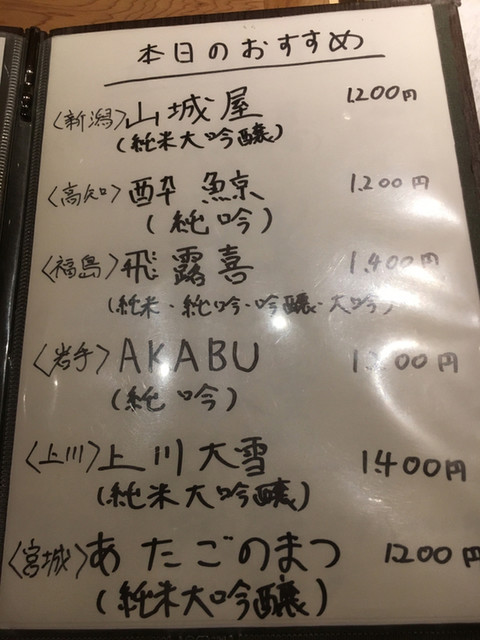 本日のおすすめ
〈新潟〉山城屋 1200円
(純米大吟醸)
〈高知〉酔鯨 1.200円
(純吟)
〈福島〉飛露喜 1.400円
(純米・純吟・吟醸・大吟)
〈岩手〉AKABU 円
(純吟)
〈上川〉上川大雪 1.400円
(純米大吟醸)
〈宮城〉あたごのまつ 1200円
(純米大吟醸)